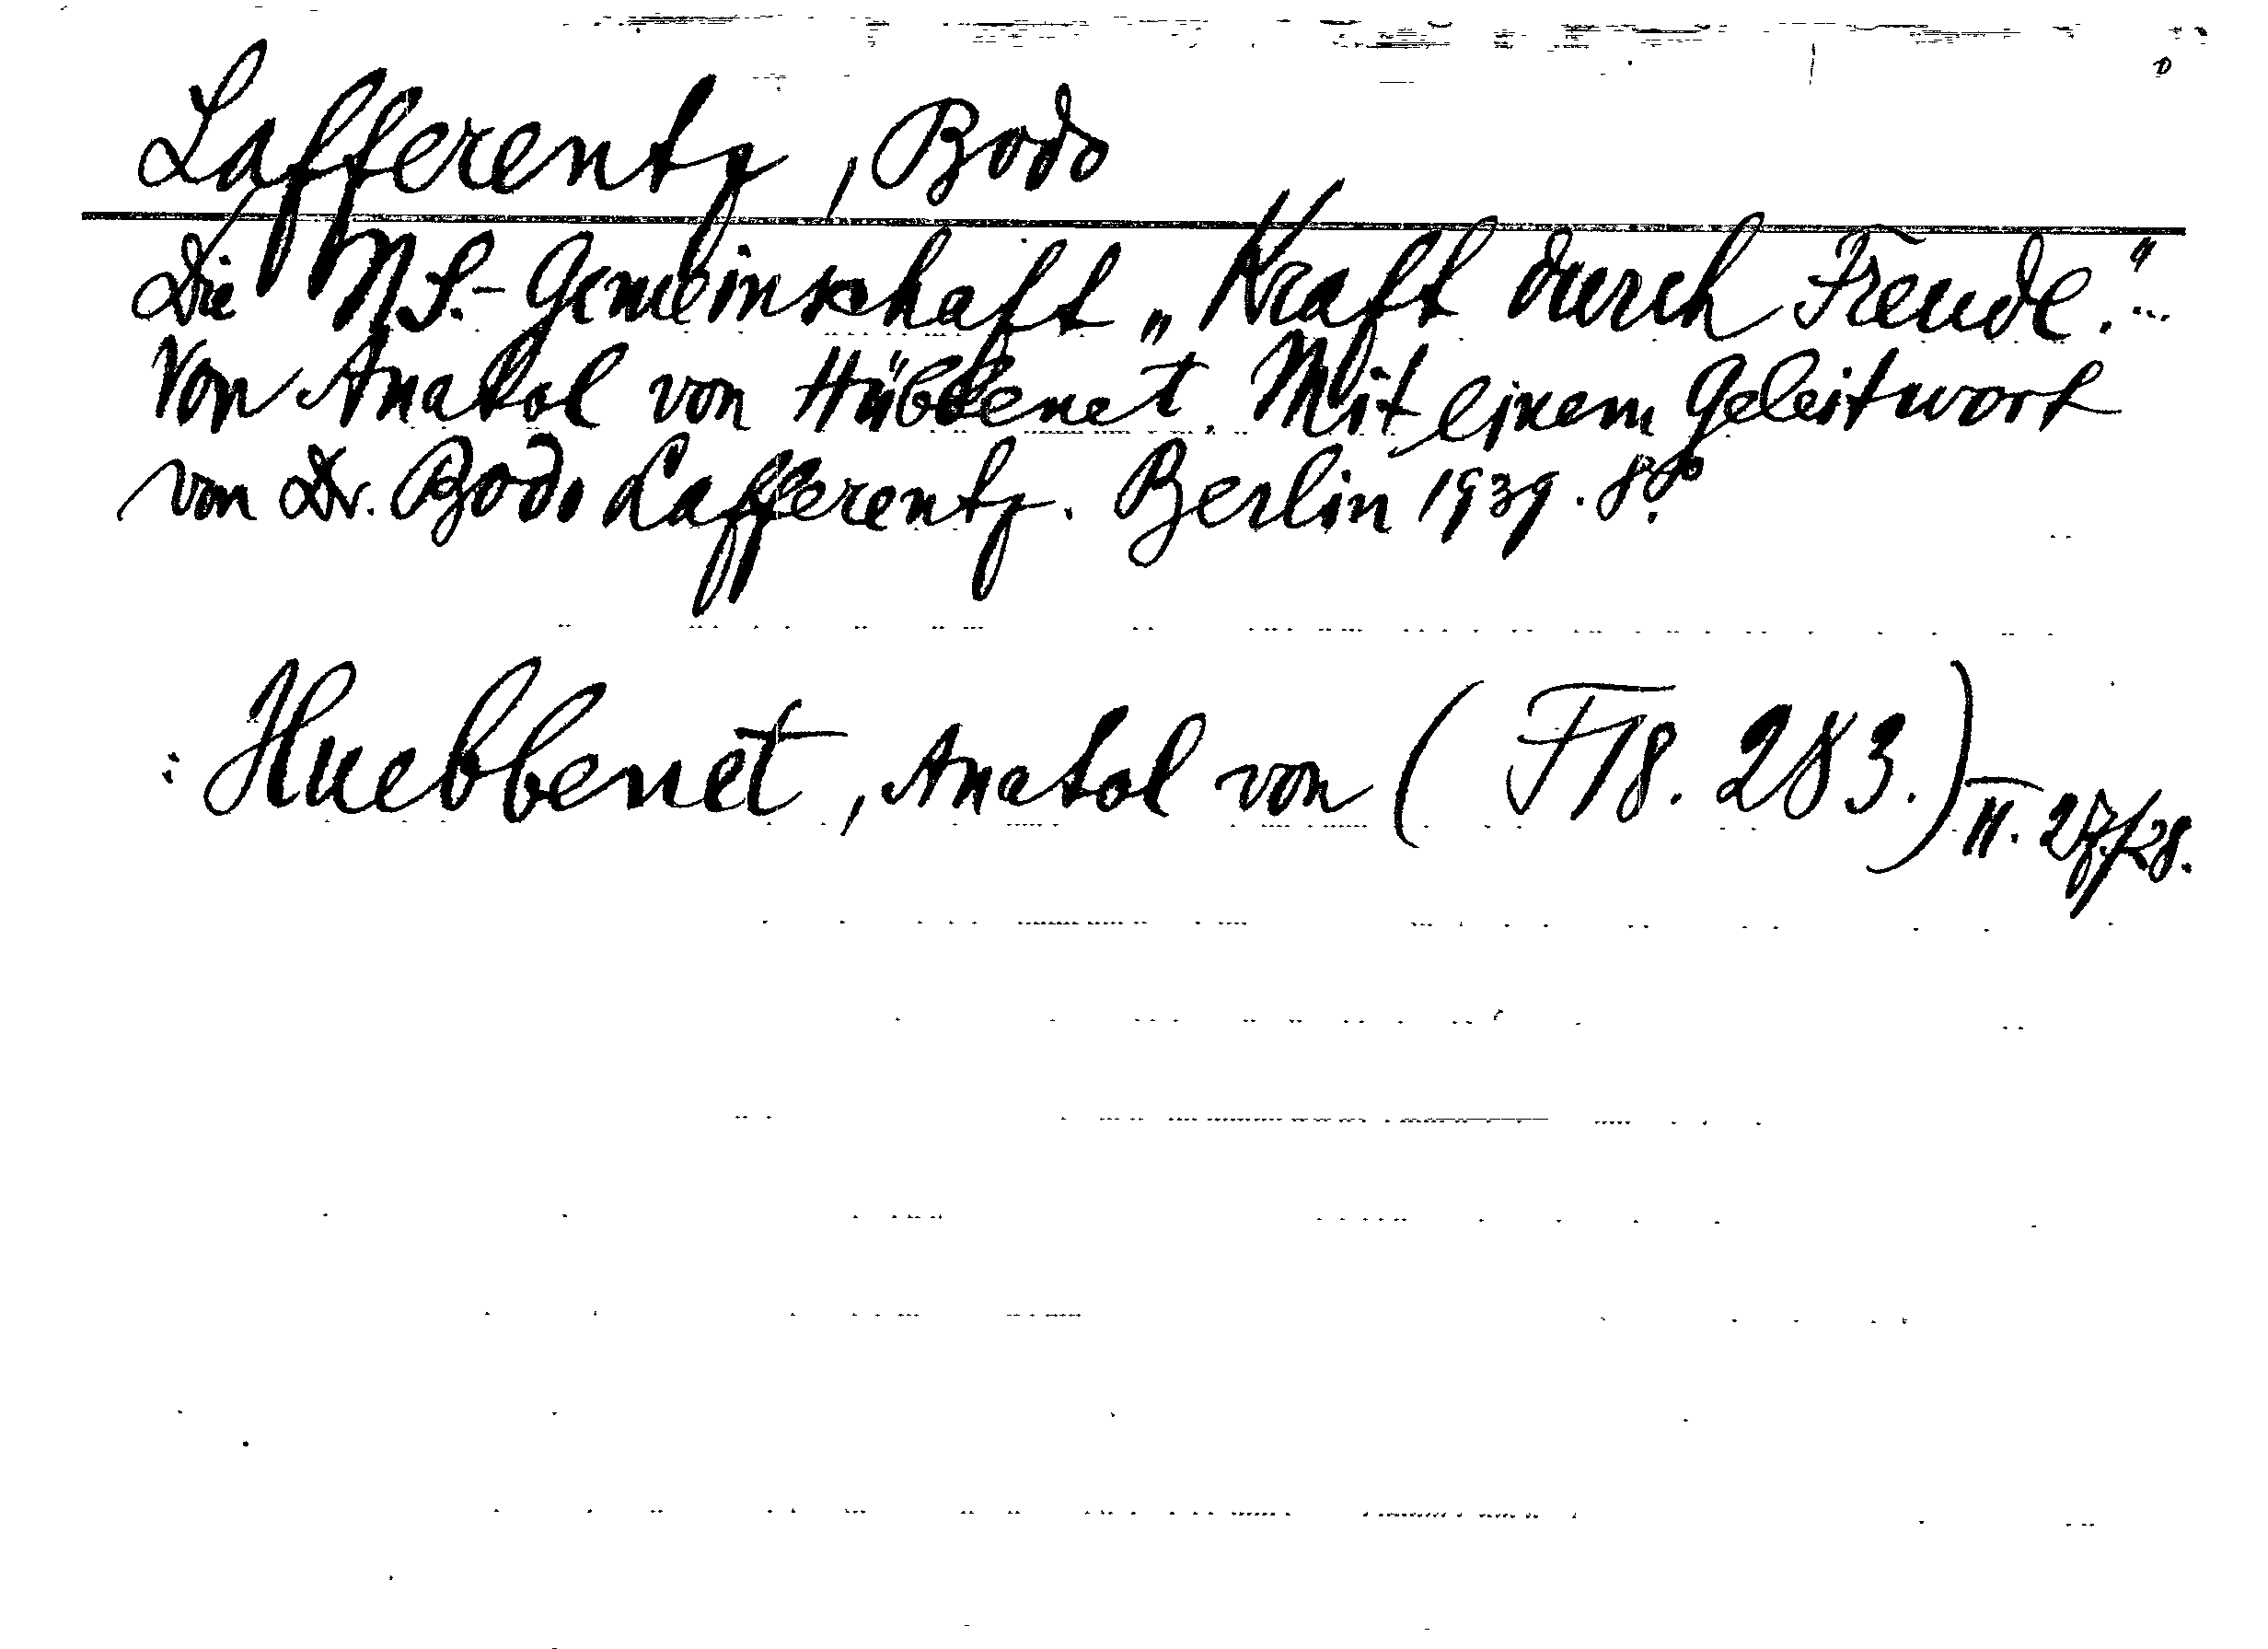 Lafferentz, Bodo
Die NS.-Gemeinschaft „Kraft durch Freude."
Von Anatol von Hübbenet. Mit einem Geleitwort
von Dr. Bodo Lafferentz. Berlin 1939. 8°.
: Huebbenet, Anatol von (F 18. 283.) II. 27/28.